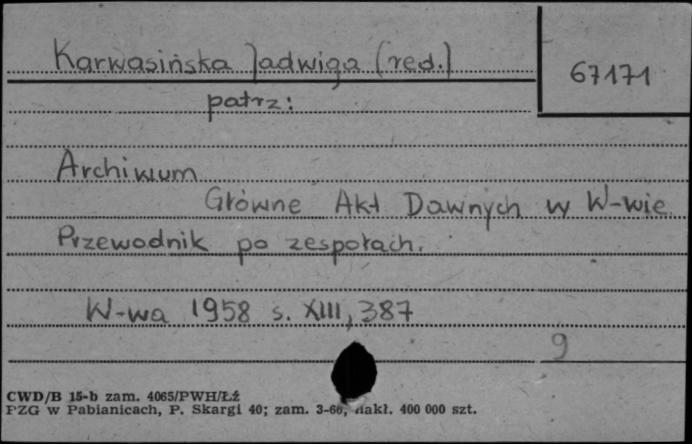 Karwasińska Jadwiga (red.)
67171
patrz:
Archiwum
Główne Akt Dawnych w W-wie
Przewodnik po zespołach.
W-wa 1958 s. XIII, 387
9
CWD/B 15-b zam. 4065/PWH/ŁŹ
PZG w Pabianicach, P. Skargi 40; zam. 3-66, nakł. 400 000 szt.